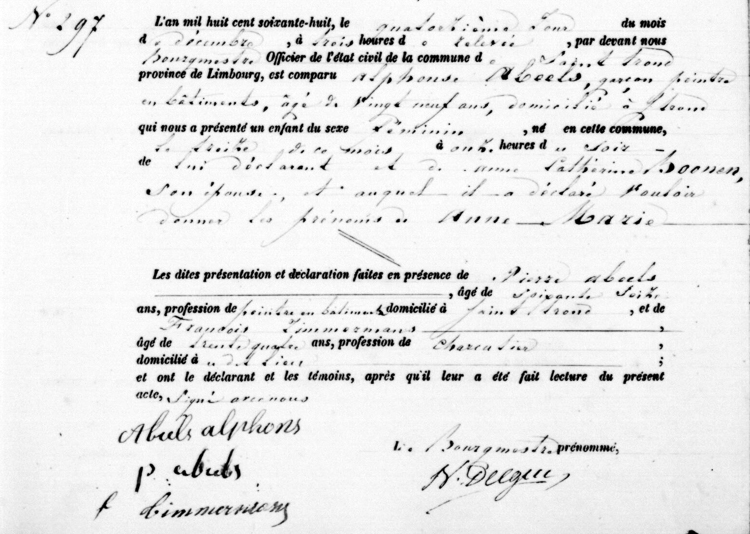 N° 297
L'an mil huit cent soixante-huit, le quatorzième jour du mois
de décembre, à trois heures de relevée, par devant nous
Bourgmestre Officier de l'état civil de la commune de Saint trond
province de Limbourg, est comparu alphonse Abeels, garçon peintre
en bâtiments, âgé de vingt neuf ans, domicilié à St trond
qui nous a présenté un enfant du sexe féminin, né en cette commune,
le treize de ce mois à onze heures du soir
de lui déclarant et de anne Catherine Boonen,
son épouse, et auquel il a déclaré vouloir
donner les prénoms de Anne-Marie
Les dites présentation et declaration faites en présence de Pierre abeels
, âgé de soixante seize
ans, profession de peintre en bâtiments domicilié à Saint trond, et de
François Timmermans,
âgé de trente quatre ans, profession de Charcutier,
domicilié à dit lieu;
et ont le déclarant et les témoins, après qu'il leur a été fait lecture du présent
acte, signé avec nous
Abeels alphons
Le Bourgmestre prénommé,
p abeels
f timmermans